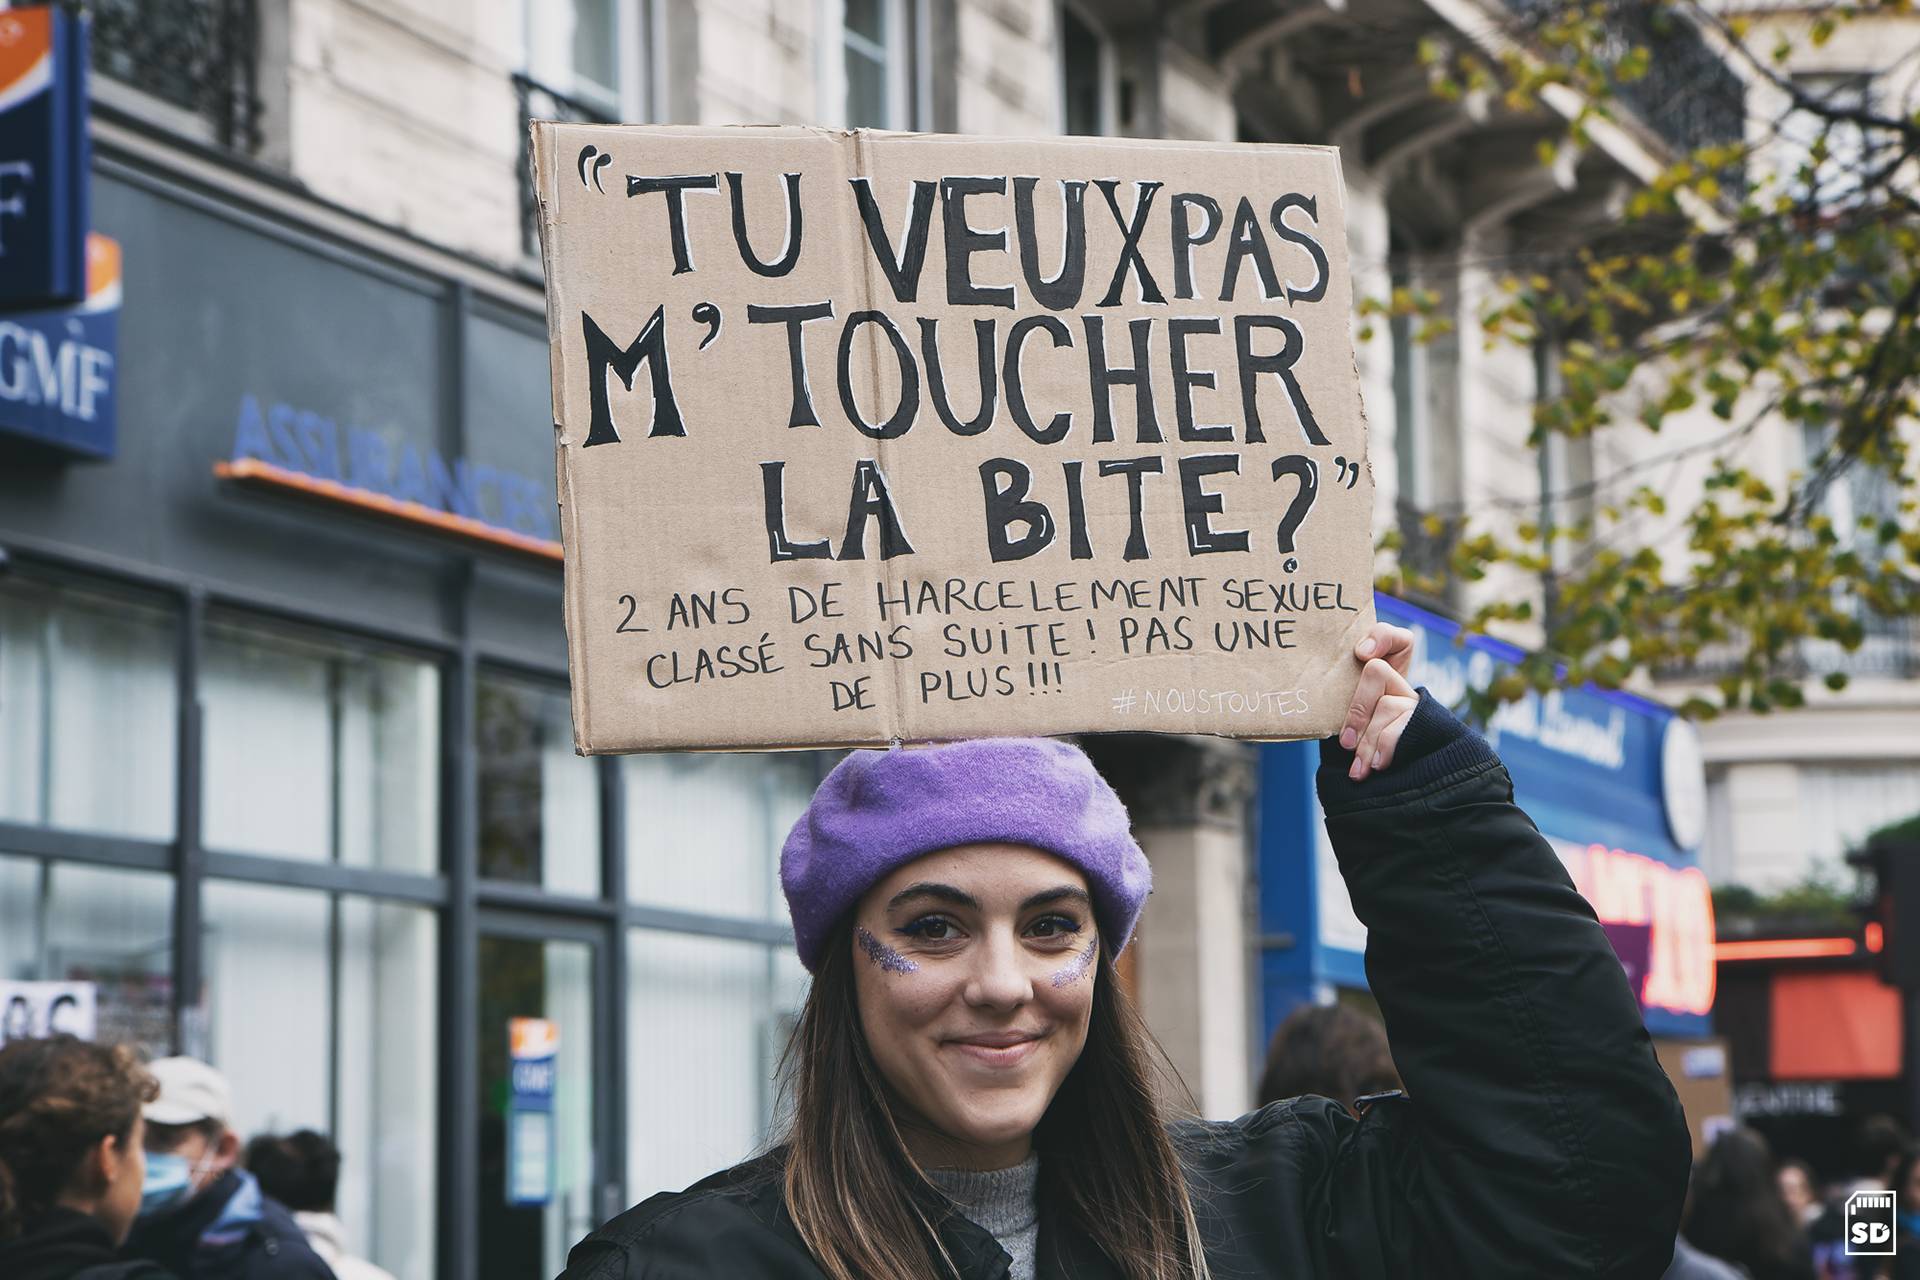 “TU VEUX PAS
M’TOUCHER
LA BITE?”
2 ANS DE HARCELEMENT SEXUEL
CLASSÉ SANS SUITE! PAS UNE
DE PLUS!!!
#NOUSTOUTES
GMF
ASSURANCES
SD